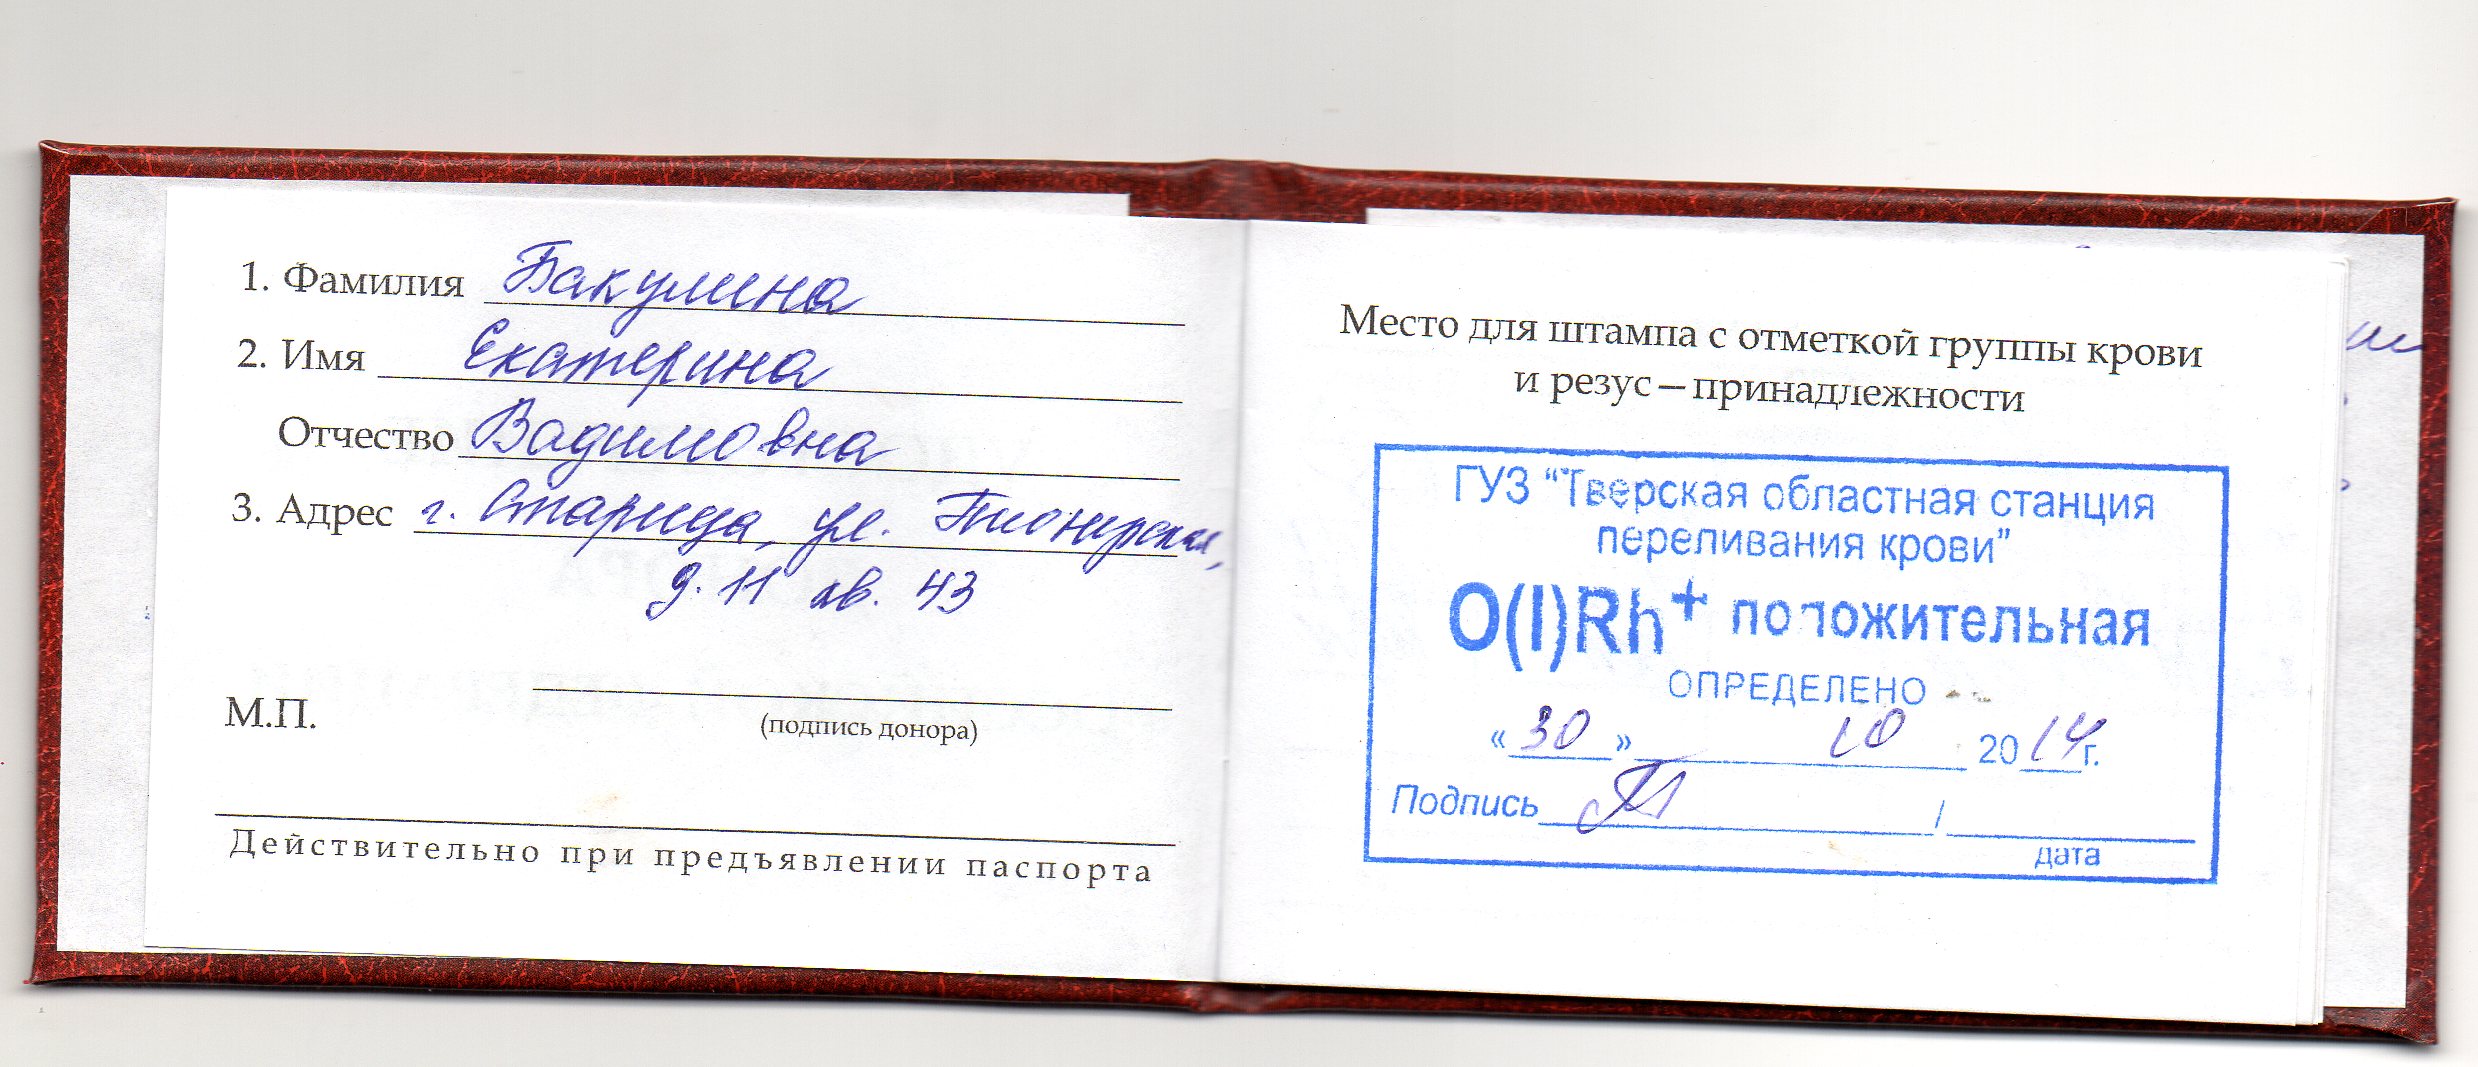 1. Фамилия Бакулина
2. Имя Екатерина
Отчество Вадимовна
3. Адрес г. Старица, ул. Пионерская,
д. 11 кв. 43
(подпись донора)
М.П.
Действительно при предъявлении паспорта
Место для штампа с отметкой группы крови
и резус—принадлежности
ГУЗ "Тверская областная станция
переливания крови"
O(I)Rh+ положительная
ОПРЕДЕЛЕНО
«30» 10 2014г.
Подпись /
дата